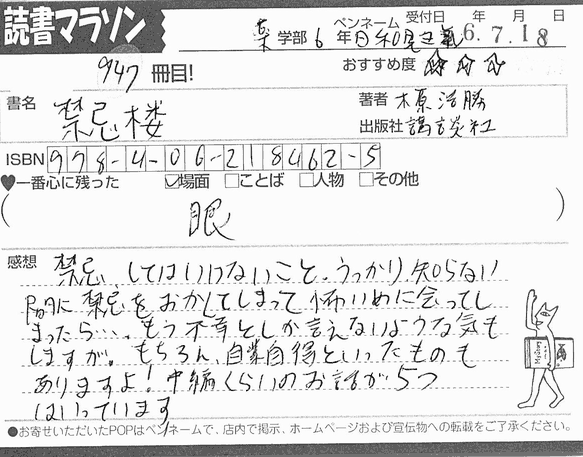 読書マラソン
薬学部 6年 ペンネーム 日和見 受付日 年 月 日
6.7.18
947冊目!
おすすめ度 ☆☆☆
書名 禁忌楼
著者 木原浩勝
出版社 講談社
ISBN 978-4-06-218462-5
♥一番心に残った ☑場面 □ことば □人物 □その他
( 眼 )
感想 禁忌、してはいけないこと、うっかり知らない
間に禁忌をおかしてしまって怖いめに会ってし
まったら…。もう不幸としか言えないような気も
しますが。もちろん、自業自得といったものも
ありますよ!中編くらいのお話が5つ
はいっています
●お寄せいただいたPOPはペンネームで、店内で掲示、ホームページおよび宣伝物への転載をご了承ください。